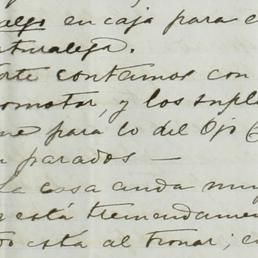 algo en caja para e
aturaleza.
orte contamos con
omotor, y los supl
ne para lo del Ojo C
n parados —
La cosa anda muy
y está tremendamen
to está al tronar; e